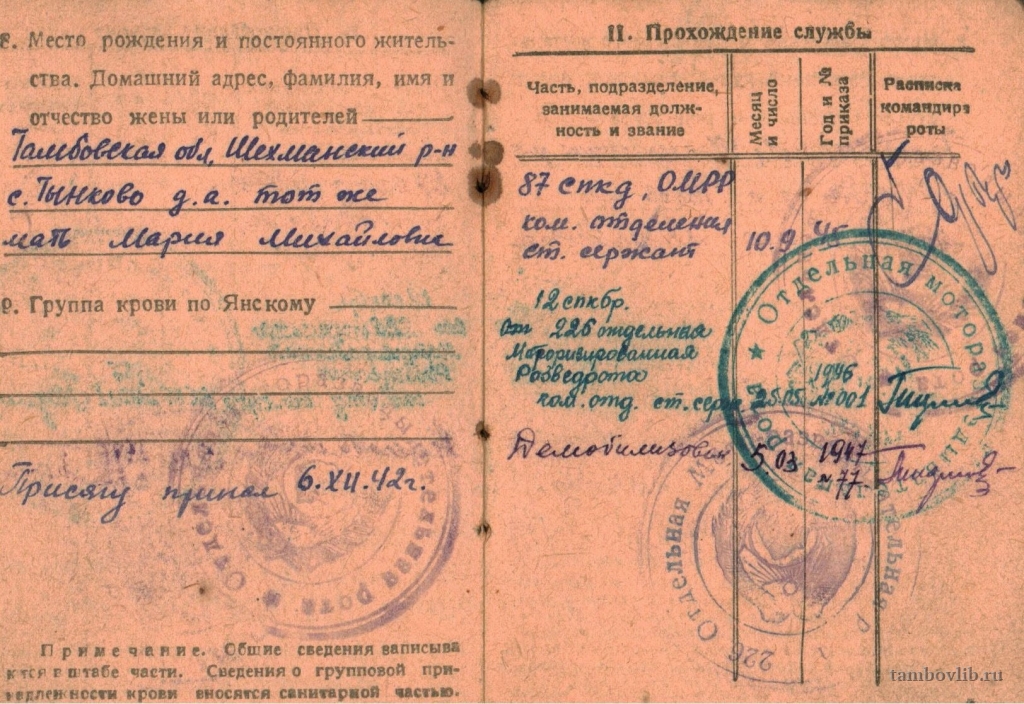 8. Место рождения и постоянного житель-
ства. Домашний адрес, фамилия, имя и
отчество жены или родителей
Тамбовская обл, Шехманский р-н
с. Тынково д.а. тот же
мать Мария Михайловне
9. Группа крови по Янскому
Присягу принял 6.XII.42г.
Примечание. Общие сведения записыва
ются в штабе части. Сведения о групповой при-
надлежности крови вносятся санитарной частью.
II. Прохождение службы
Часть, подразделение, занимаемая долж-
ность и звание
Месяц и число
Год и № приказа
Расписка командира роты
87 спкд, ОМРР
ком. отделения
ст. сержант 10.9 45
12 спкбр.
226 отдельная
Моторизированная
Розведрота
ком. отд. ст. серж 25.05 1946 № 001
Демобилизован 5 03 1947 № 77.
Отдельная моторазведывательная рота
226 Отдельная
Отдельная рота
tambovlib.ru